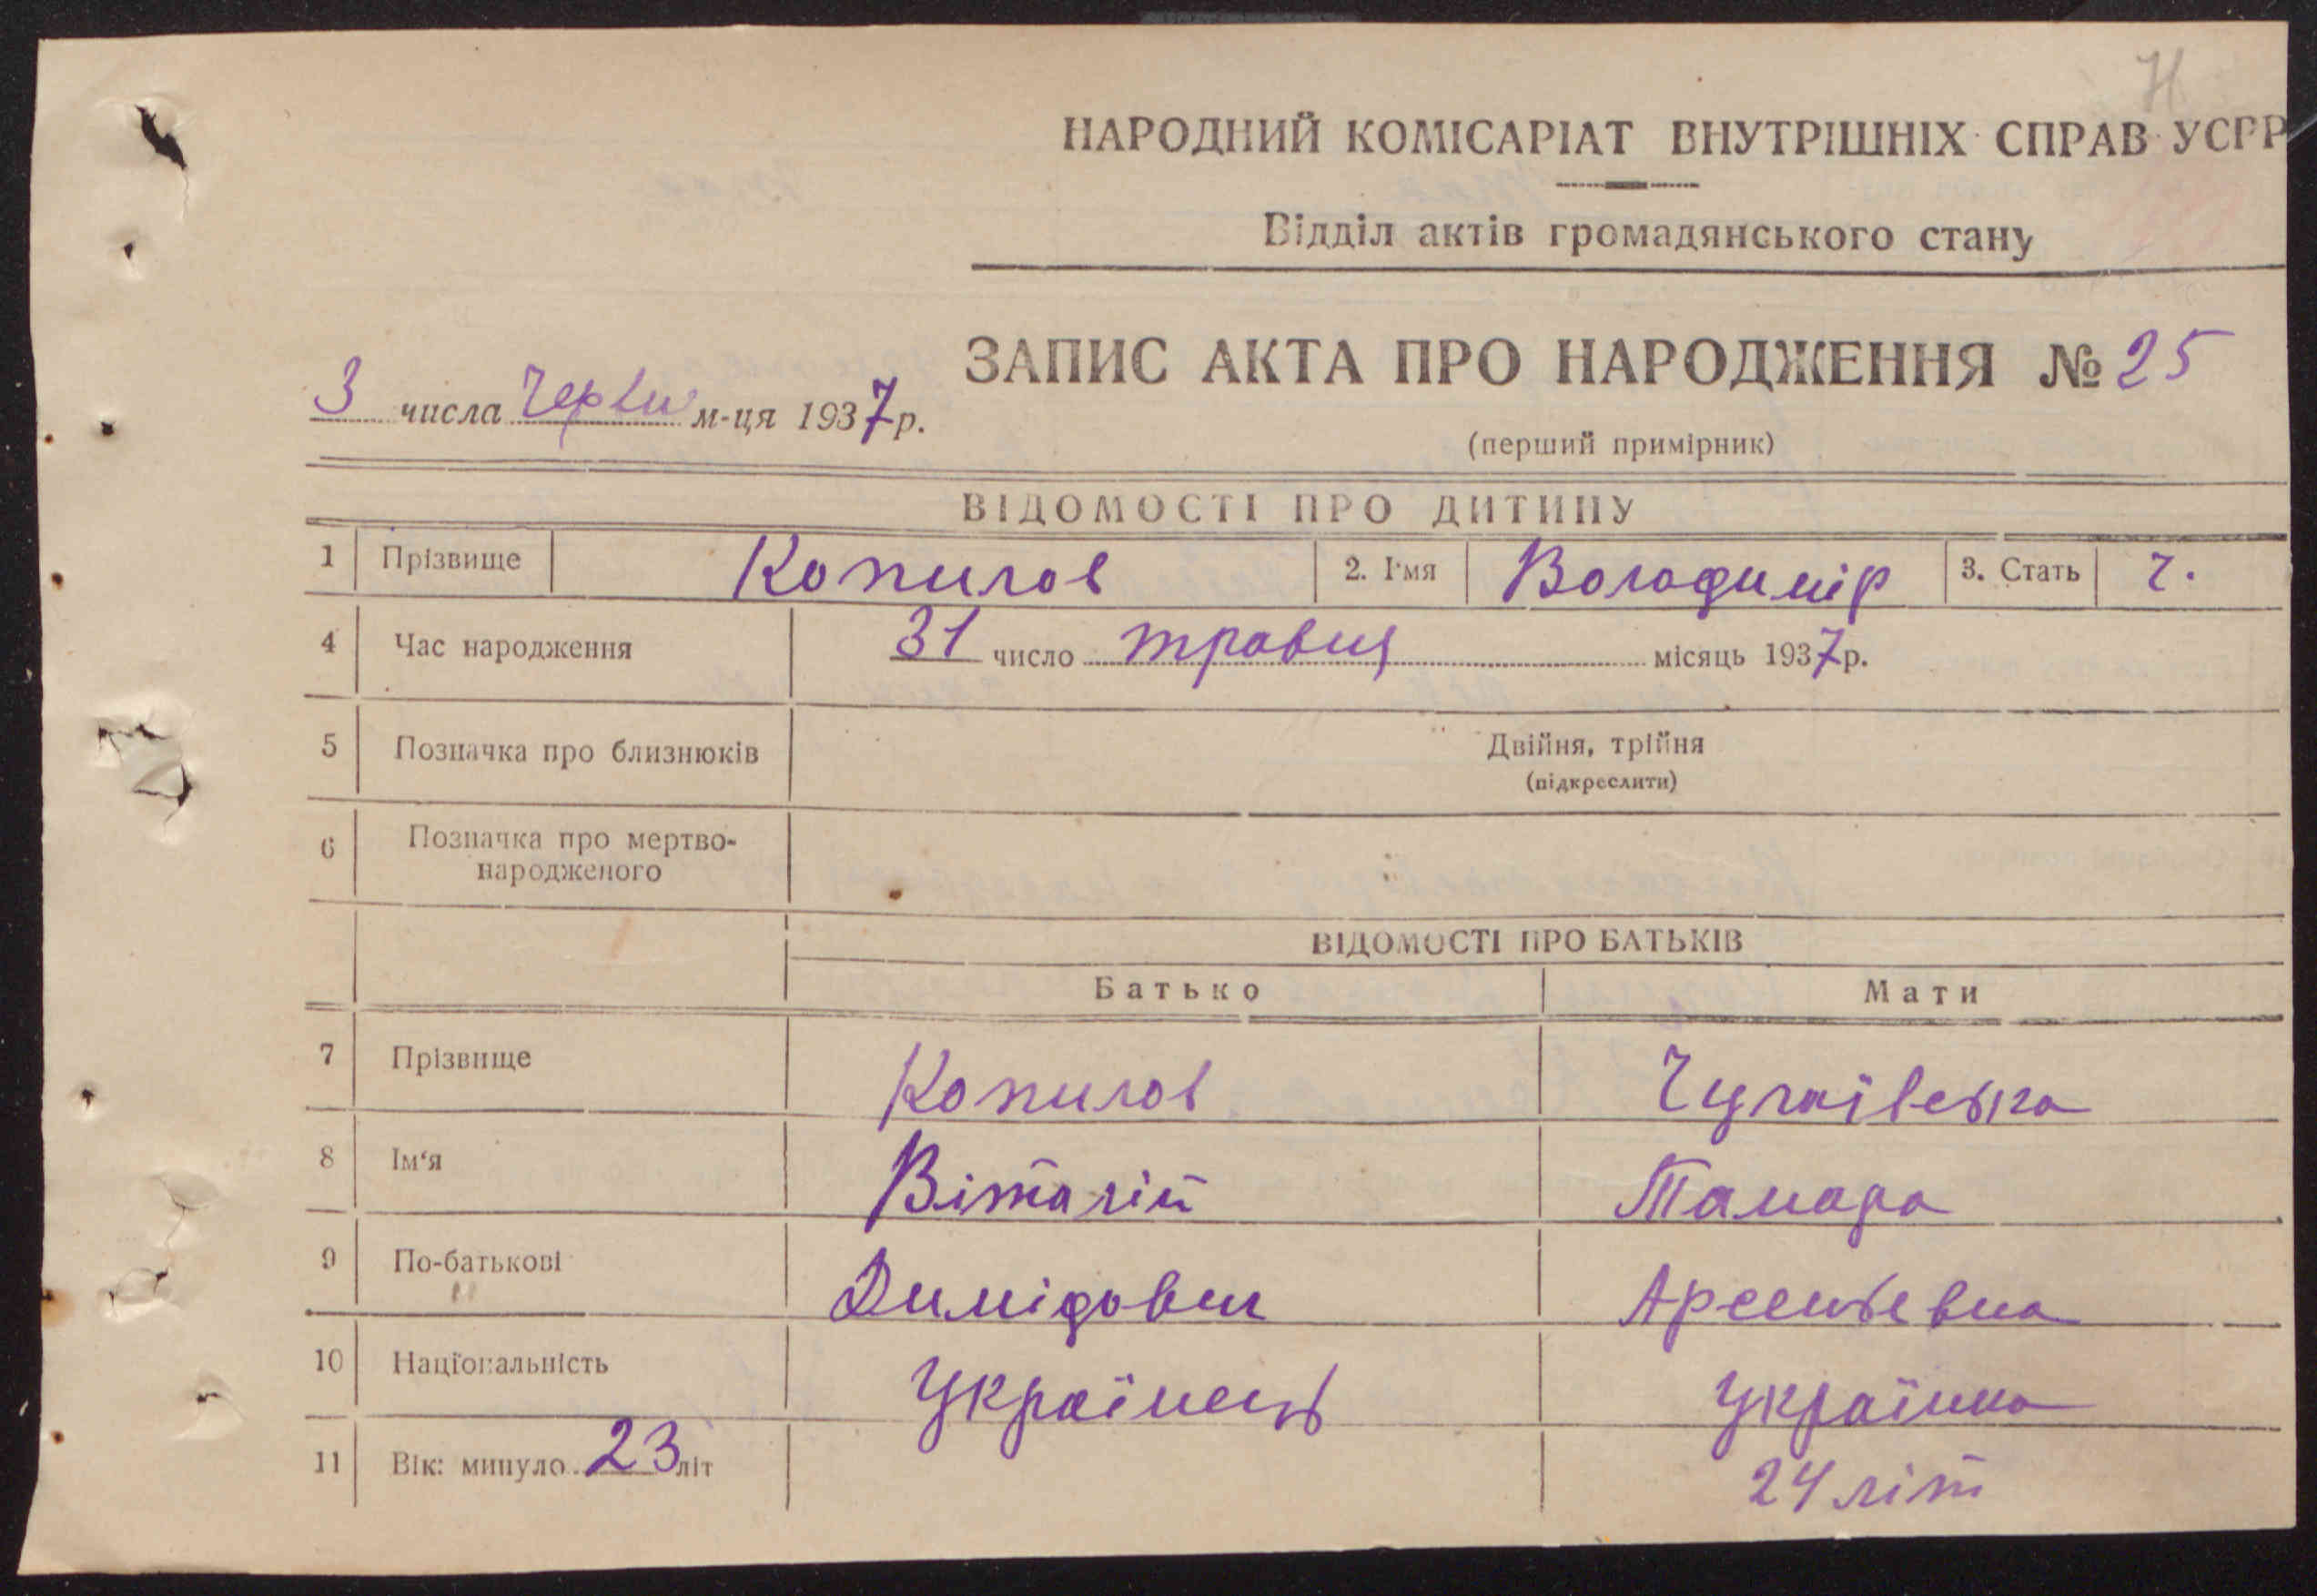 НАРОДНИЙ КОМІСАРІАТ ВНУТРІШНІХ СПРАВ УСРР
Відділ актів громадянського стану
ЗАПИС АКТА ПРО НАРОДЖЕННЯ № 25
3 числа Червн м-ця 1937 р.
(перший примірник)
ВІДОМОСТІ ПРО ДИТИНУ
1 Прізвище Копилов 2. Ім'я Володимір 3. Стать ч.
4 Час народження 31 число травня місяць 1937 р.
5 Позначка про близнюків Двійня, трійня
(підкреслити)
6 Позначка про мертво-
народженого
ВІДОМОСТІ ПРО БАТЬКІВ
Батько Мати
7 Прізвище Копилов
8 Ім'я Віталій Тамара
9 По-батькові Димідович Арсеньевна
10 Національність Українець Українка
11 Вік: минуло 23 літ 24 літ